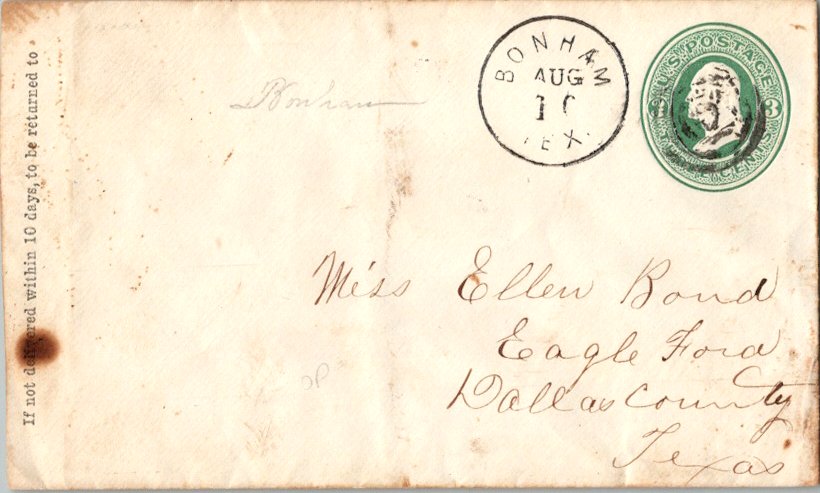 If not delivered within 10 days, to be returned to
Bonham
BONHAM
AUG
TEX.
U.S. POSTAGE
3
CENTS
Miss Ellen Bond
Eagle Ford
Dallas County
Texas